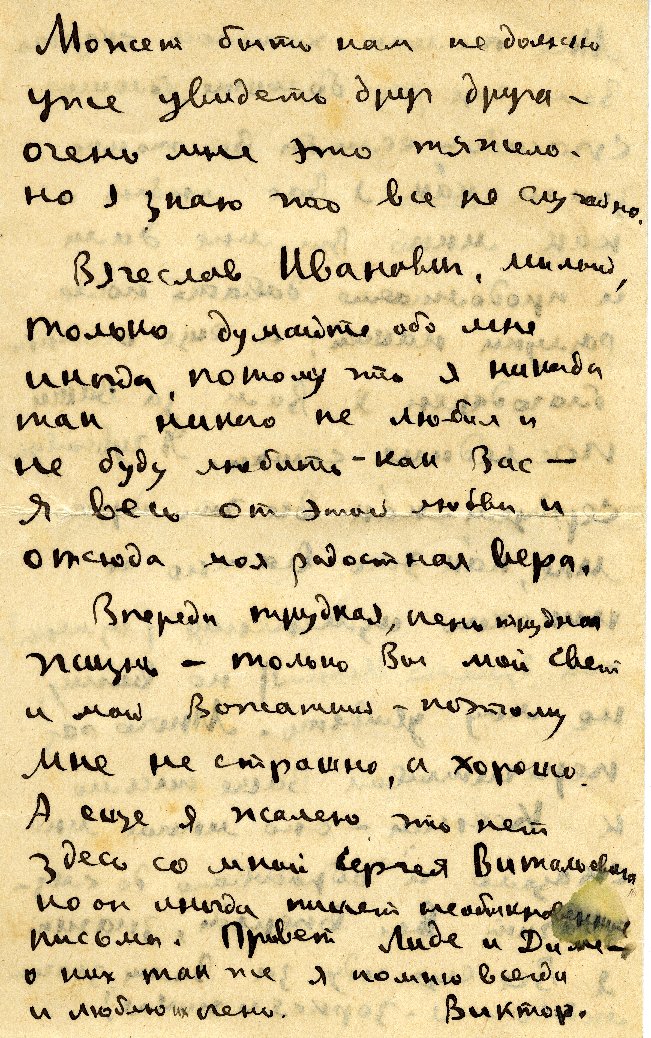 Может быть нам не должно
уже увидеть друг друга –
очень мне это тяжело –
но я знаю что все не случайно.
Вячеслав Иванович, милый,
только думайте обо мне
иногда, потому что я никогда
так никого не любил и
не буду любить – как Вас –
я весь от этой любви и
отсюда моя радостная вера.
Впереди трудная, очень трудная
жизнь – только Вы мой свет
и мой Вожатый – поэтому
мне не страшно, а хорошо.
А еще я жалею что нет
здесь со мной Сергея Витальевича
но он иногда пишет необыкновенные
письма. Привет Лиде и Диме –
о них так же я помню всегда
и люблю их очень. Виктор.